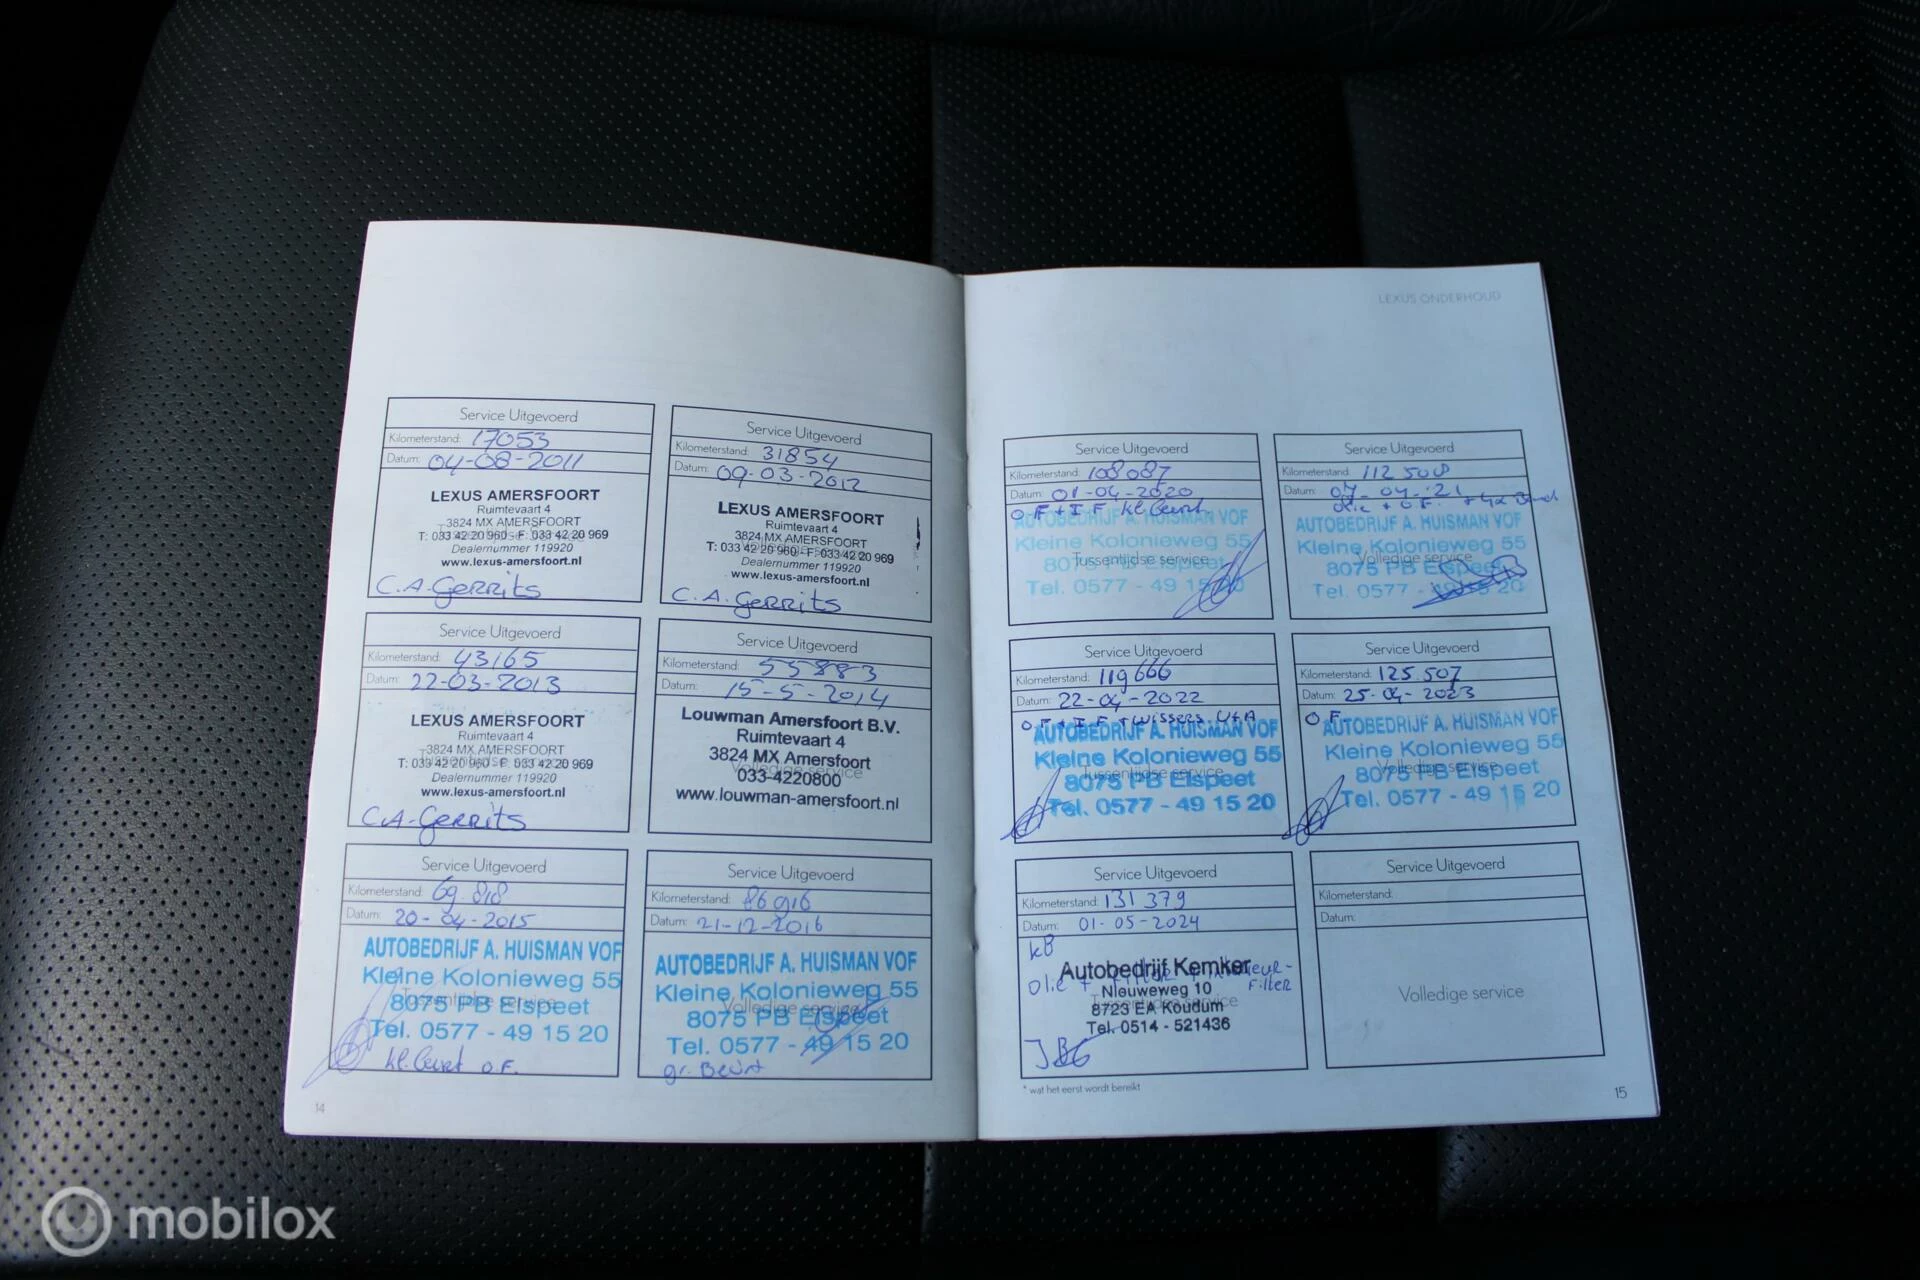 Service Uitgevoerd
Kilometerstand: 17053
Datum: 04-08-2011
LEXUS AMERSFOORT
Ruimtevaart 4
3824 MX AMERSFOORT
T: 033 42 20 960 F: 033 42 20 969
Dealernummer 119920
www.lexus-amersfoort.nl
C.A. Gerrits
Service Uitgevoerd
Kilometerstand: 31854
Datum: 09-03-2012
LEXUS AMERSFOORT
Ruimtevaart 4
3824 MX AMERSFOORT
T: 033 42 20 960 F: 033 42 20 969
Dealernummer 119920
www.lexus-amersfoort.nl
C.A. Gerrits
Service Uitgevoerd
Kilometerstand: 43165
Datum: 22-03-2013
LEXUS AMERSFOORT
Ruimtevaart 4
3824 MX AMERSFOORT
T: 033 42 20 960 F: 033 42 20 969
Dealernummer 119920
www.lexus-amersfoort.nl
C.A. Gerrits
Service Uitgevoerd
Kilometerstand: 55883
Datum: 15-5-2014
Louwman Amersfoort B.V.
Ruimtevaart 4
3824 MX Amersfoort
Volledige service
033-4220800
www.louwman-amersfoort.nl
Service Uitgevoerd
Kilometerstand: 69.818
Datum: 20-04-2015
AUTOBEDRIJF A. HUISMAN VOF
Kleine Kolonieweg 55
Tussentijdse service
8075 PB Elspeet
Tel. 0577 - 49 15 20
kl. Beurt O.F.
Service Uitgevoerd
Kilometerstand: 86916
Datum: 21-12-2016
AUTOBEDRIJF A. HUISMAN VOF
Kleine Kolonieweg 55
Volledige service
8075 PB Elspeet
Tel. 0577 - 49 15 20
gr. Beurt
14
LEXUS ONDERHOUD
Service Uitgevoerd
Kilometerstand: 108087
Datum: 01-04-2020
O.F + I.F kl. Beurt
AUTOBEDRIJF A. HUISMAN VOF
Kleine Kolonieweg 55
Tussentijdse service
8075 PB Elspeet
Tel. 0577 - 49 15 20
Service Uitgevoerd
Kilometerstand: 112508
Datum: 07-04-'21
olie + O.F.
AUTOBEDRIJF A. HUISMAN VOF
Kleine Kolonieweg 55
Volledige service
8075 PB Elspeet
Tel. 0577 - 49 15 20
Service Uitgevoerd
Kilometerstand: 119666
Datum: 22-04-2022
O F + I F + wissers V+A
AUTOBEDRIJF A. HUISMAN VOF
Kleine Kolonieweg 55
Tussentijdse service
8075 PB Elspeet
Tel. 0577 - 49 15 20
Service Uitgevoerd
Kilometerstand: 125.507
Datum: 25-04-2023
O F.
AUTOBEDRIJF A. HUISMAN VOF
Kleine Kolonieweg 55
Volledige service
8075 PB Elspeet
Tel. 0577 - 49 15 20
Service Uitgevoerd
Kilometerstand: 131379
Datum: 01-05-2024
kB
Autobedrijf Kemker
Olie + Filter + Interieur-
Filter
Nieuweweg 10
Tussentijdse service
8723 EA Koudum
Tel. 0514 - 521436
Service Uitgevoerd
Kilometerstand:
Datum:
Volledige service
* wat het eerst wordt bereikt
15
mobilox